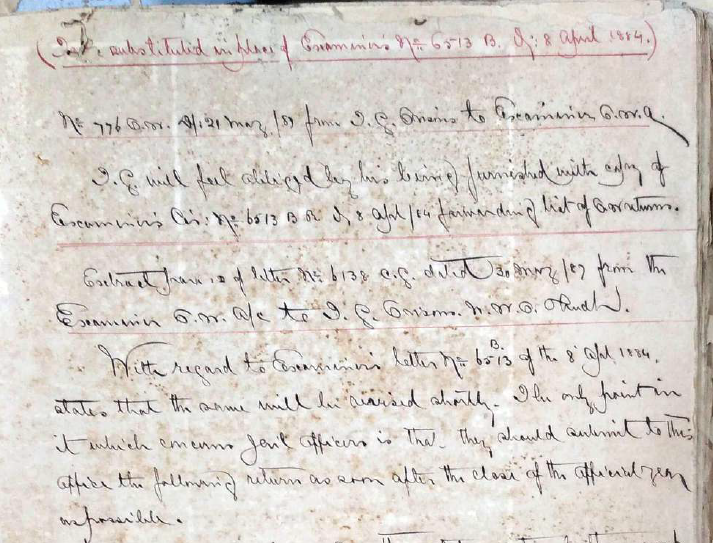 (To be substituted in place of Examiner's No 6513 B. D/: 8 April 1884.)
No 776 G.W. D/: 21 May /87 from I. G. Prisons to Examiner P.W.A.
I.G. will feel obliged by his being furnished with copy of
Examiner's Cir: No 6513 B D/ 8 Apl /84 forwarding list of returns.
Extract para of letter No 6138 C.G. dated 30 May /87 from the
Examiner P.W. A/c to I. G. Prisons. N.W.P. Oudh.
With regard to Examiner's letter No 6513 B. of the 8 Apl 1884.
states that the same will be revised shortly. The only point in
it which concerns Jail officers is that they should submit to this
office the following return as soon after the close of the official year
as possible.